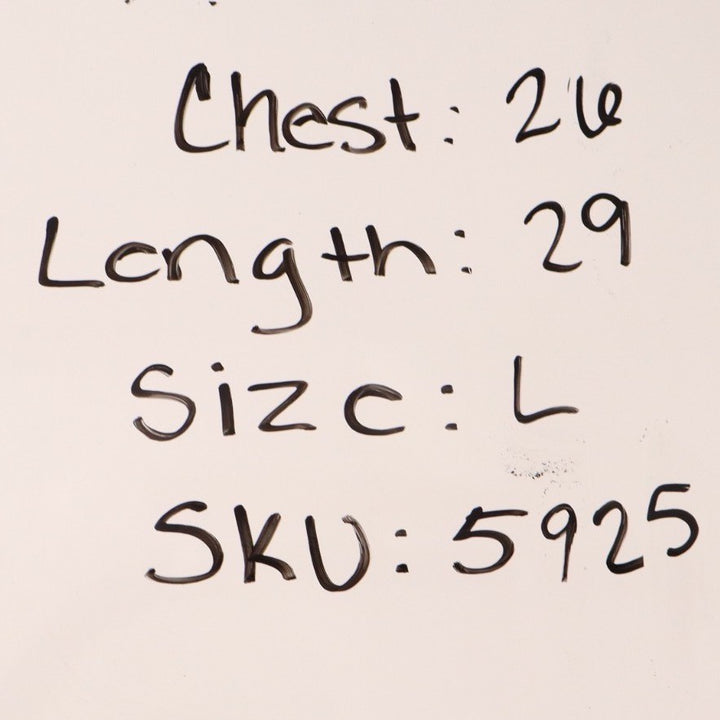 Chest: 26
Length: 29
Size: L
SKU: 5925